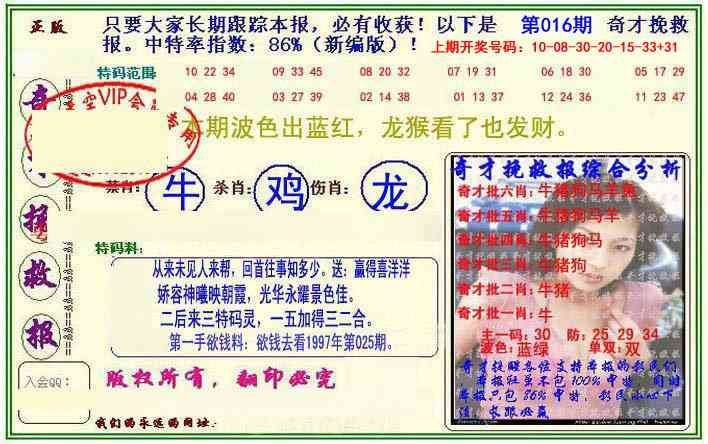 正版
只要大家长期跟踪本报，必有收获！以下是 第016期 奇才挽救
报。中特率指数：86%（新编版）！ 上期开奖号码：10-08-30-20-15-33+31
特码范围
10 22 34 09 33 45 08 20 32 07 19 31 06 18 30 05 17 29
04 28 40 03 27 39 02 14 38 01 13 37 12 24 36 11 23 47
空VIP会
专用
本期波色出蓝红，龙猴看了也发财。
禁肖：牛 杀肖：鸡 伤肖：龙
奇
挽
救
报
特码料：
从来未见人来帮，回首往事知多少。送：赢得喜洋洋
娇容神曦映朝霞，光华永耀景色佳。
二后来三特码灵，一五加得三二合。
第一手欲钱料：欲钱去看1997年第025期。
入会QQ：
版权所有，翻印必究
我们的永远的网址：
奇才挽救报综合分析
奇才批六肖：牛猪狗马羊
奇才批五肖：牛猪狗马羊
奇才批四肖：牛猪狗马
奇才批三肖：牛猪狗
奇才批二肖：牛猪
奇才批一肖：牛
主一码：30 防：25 29 34
波色：蓝绿 单双：双
奇才挽救各位支持本报的彩民们
，本报虽不包100%中特，同时
本报只包86%中特，彩民小心下
注，